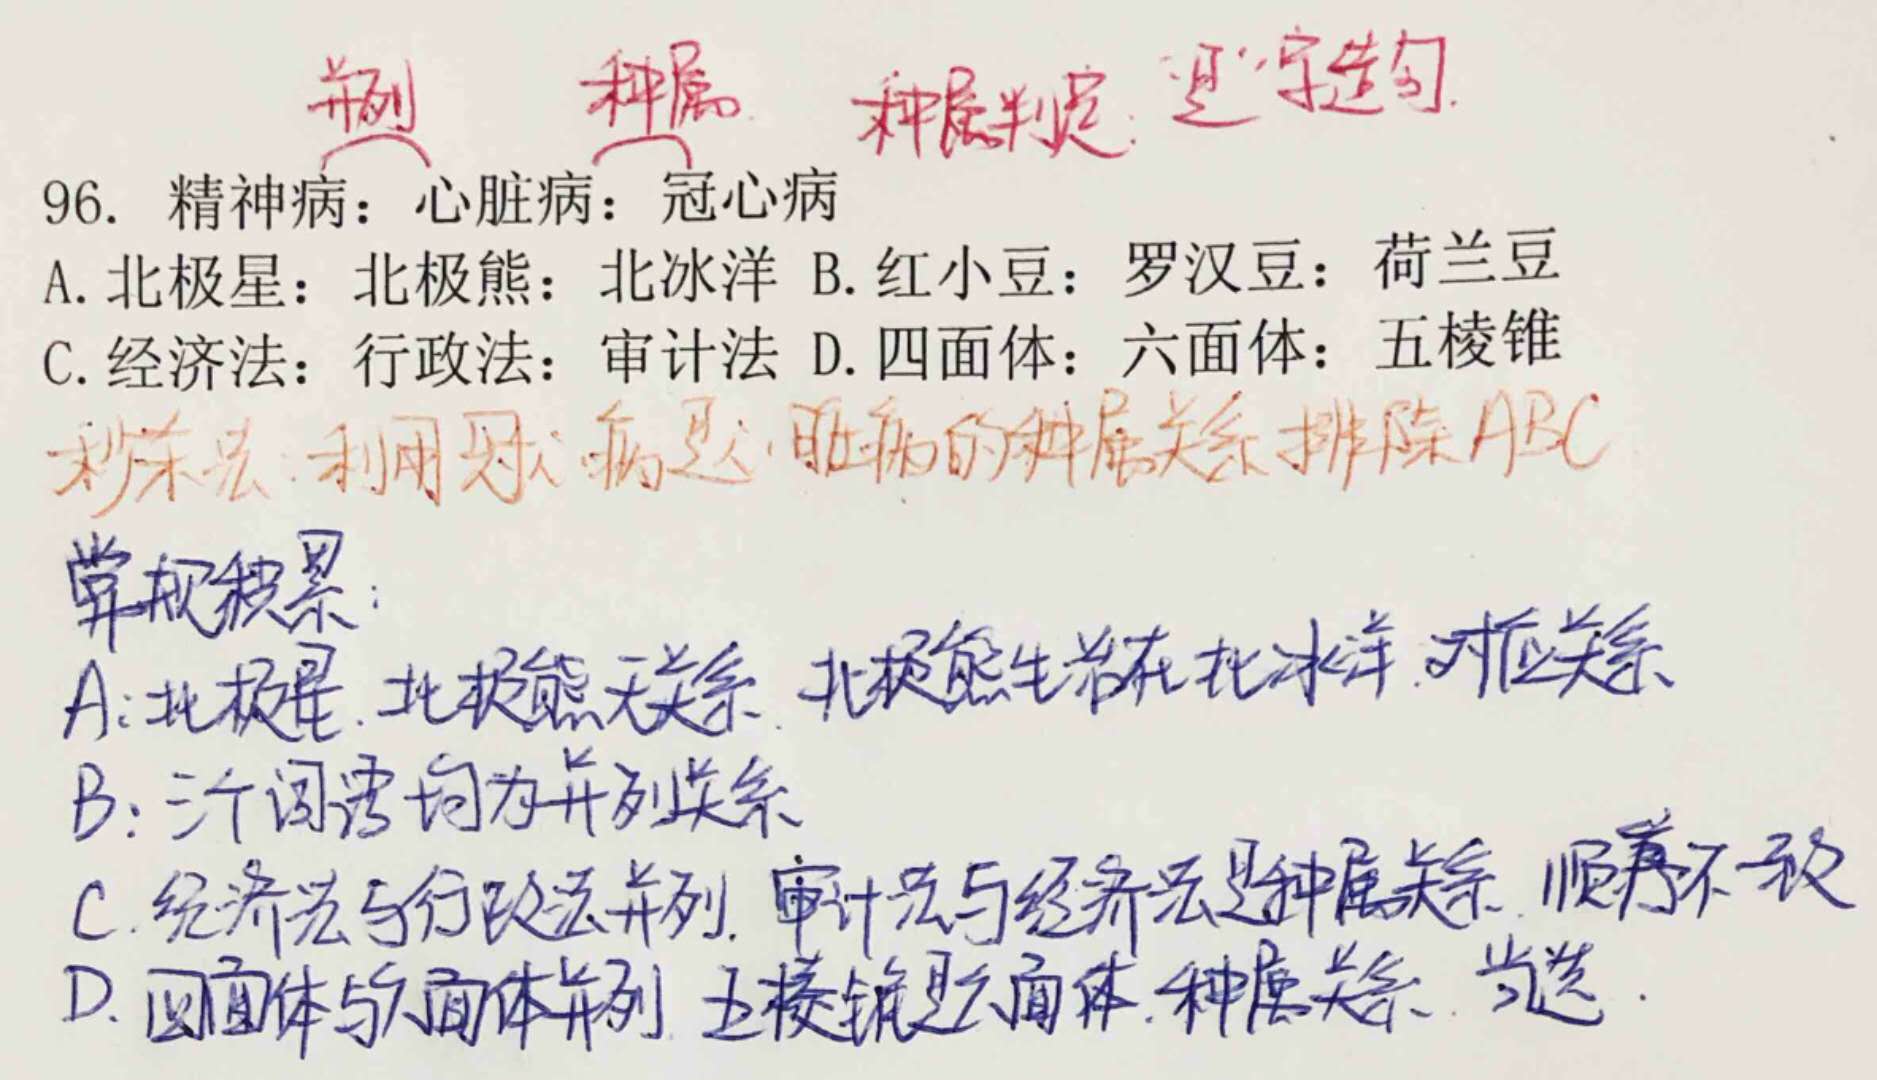 并列 种属 种属判定:"是"字造句.
96. 精神病：心脏病：冠心病
A.北极星：北极熊：北冰洋 B.红小豆：罗汉豆：荷兰豆
C.经济法：行政法：审计法 D.四面体：六面体：五棱锥
秒杀法:利用冠心病是心脏病的种属关系排除ABC
常规积累:
A:北极星.北极熊无关系.北极熊生活在北冰洋.对应关系
B:三个词语均为并列关系
C.经济法与行政法并列.审计法与经济法是种属关系.顺序不一致
D.四面体与六面体并列.五棱锥是六面体.种属关系.当选.